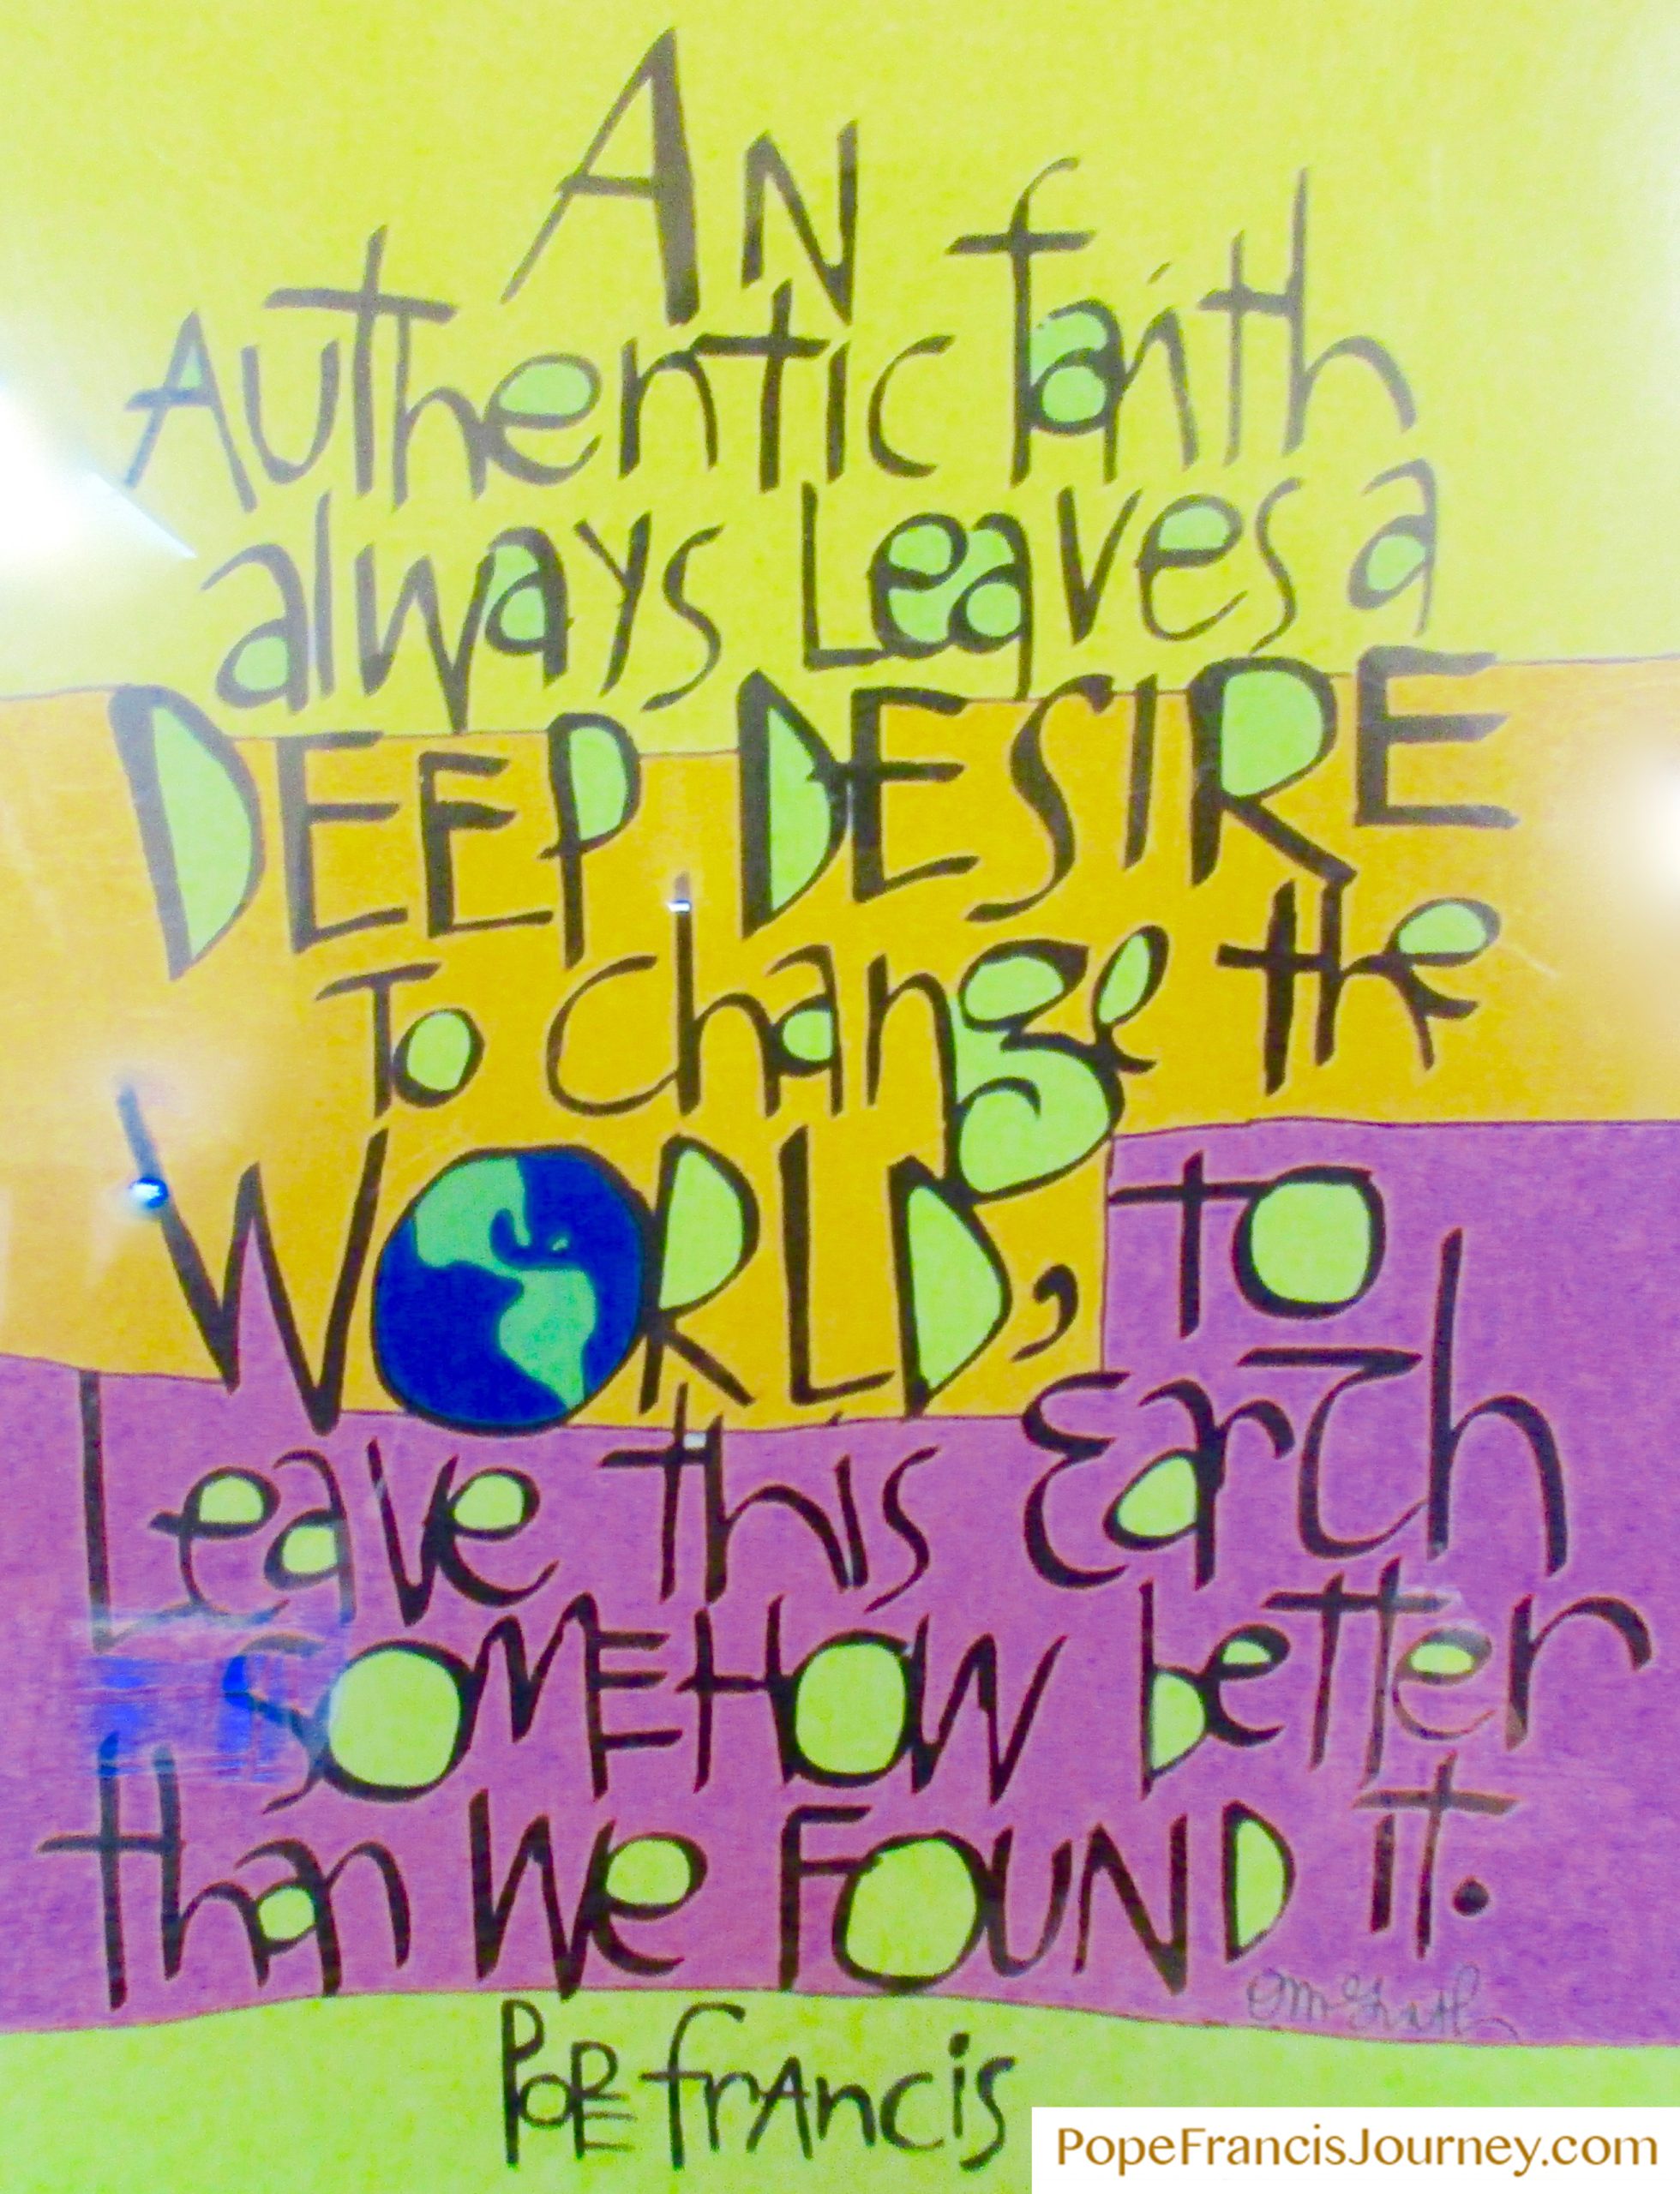 AN
Authentic faith
always Leaves a
DEEP DESIRE
To change the
WORLD, to
Leave this Earth
SOMEHOW better
than We FOUND it.
McGrath
POPE frAncis
PopeFrancisJourney.com